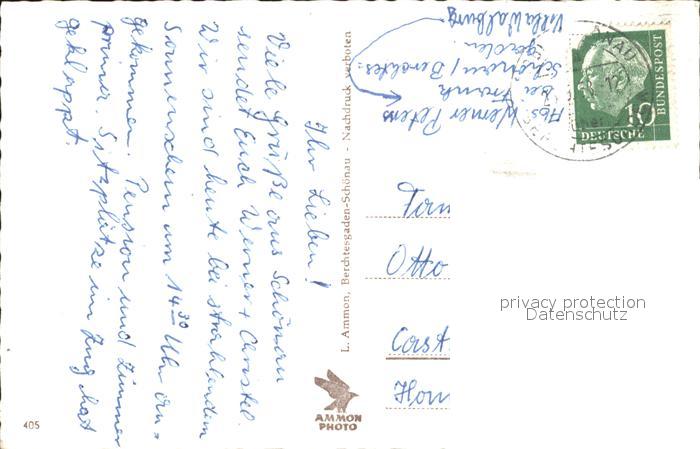 Ihr Lieben!
Viele Grüße aus Schönau
sendet Euch Werner + Christel.
Wir sind heute bei strahlendem
Sonnenschein um 14³⁰ Uhr an=
gekommen. Pension und Zimmer
prima. Sitzplätze im Zug hat
geklappt.
L. Ammon, Berchtesgaden-Schönau - Nachdruck verboten
AMMON
PHOTO
405
Abs. Werner Peters
bei Frank
Schönau / Berchtes=
gaden
Villa Walburg
DEUTSCHE
BUNDESPOST
10
Fam
Otto
Cast
Hom
privacy protection
Datenschutz